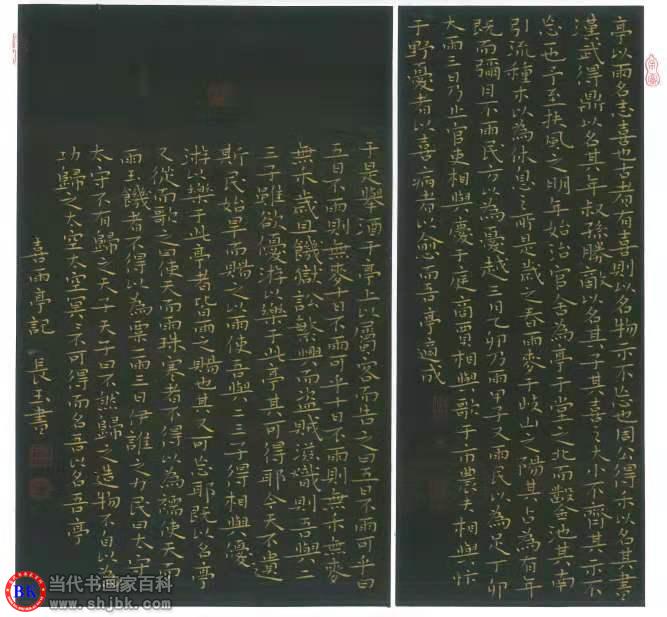 亭以雨名志喜也古者有喜則以名物示不忘也周公得禾以名其書
漢武得鼎以名其年叔孫勝敵以名其子其喜之大小不齊其示不
忘一也予至扶風之明年始治官舍為亭于堂之北而鑿池其南
引流種木以為休息之所是歲之春雨麥于岐山之陽其占為有年
既而彌月不雨民方以為憂越三月乙卯乃雨甲子又雨民以為足丁卯
大雨三日乃止官吏相與慶于庭商賈相與歌于市農夫相與忭
于野憂者以喜病者以愈而吾亭適成
于是舉酒于亭上以屬客而告之曰五日不雨可乎曰
五日不雨則無麥十日不雨可乎十日不雨則無禾無麥
無禾歲且饑獄訟繁興而盜賊滋熾則吾與二
三子雖欲優游以樂于此亭其可得耶今天不遺
斯民始旱而賜之以雨使吾與二三子得相與優
游以樂于此亭者皆雨之賜也其又可忘耶既以名亭
又從而歌之曰使天而雨珠寒者不得以為襦使天而
雨玉饑者不得以為粟一雨三日伊誰之力民曰太守
太守不有歸之天子天子曰不然歸之造物不自以為
功歸之太空太空冥冥不可得而名吾以名吾亭
喜雨亭記 長玉書
BK 当代书画家百科
www.shjbk.com